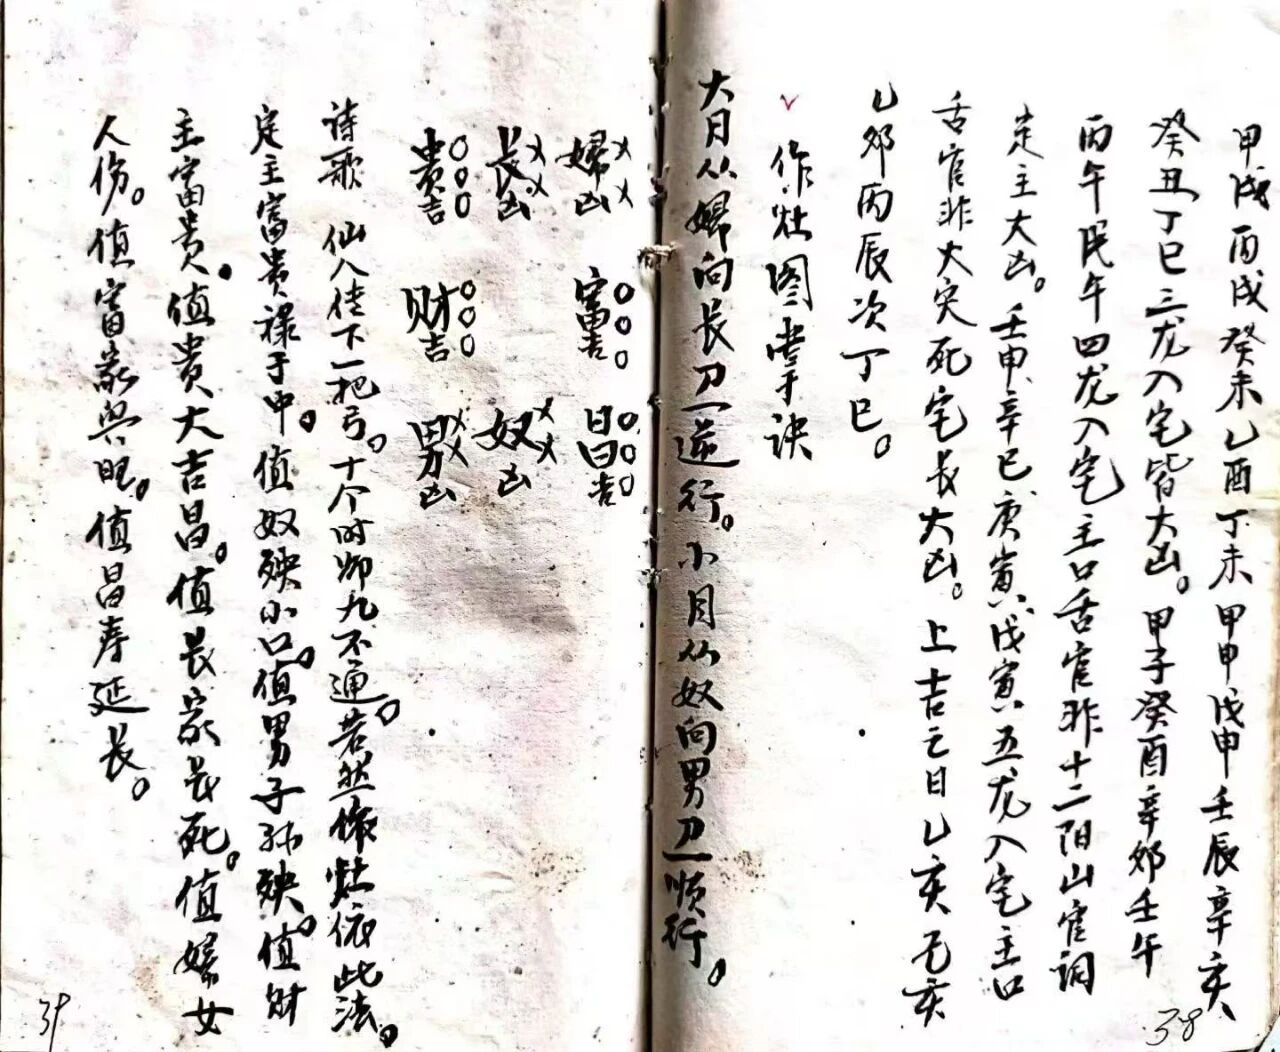 甲戌丙戌癸未乙酉丁未甲申戊申壬辰辛亥
癸丑丁巳三龙入宅皆大凶。甲子癸酉辛卯壬午
丙午民午四龙入宅主口舌官非十二阳山官词
定主大凶。壬申辛巳庚寅戊寅五龙入宅主口
舌官非火灾死宅长大凶。上吉之日乙亥己亥
乙卯丙辰次丁巳。
作灶图掌手诀
大月从婦向长刀一逆行。小月从奴向男刀一顺行。
婦凶 富吉 昌吉
长凶 奴凶
贵吉 财吉 男凶
诗歌 仙人佳下一把弓。十个时师九不通。若然作灶依此法。
定主富贵禄于中。值奴殃小口。值男子孙殃。值财
主富贵。值贵大吉昌。值长家长死。值婦女
人伤。值富家兴旺。值昌寿延长。
39
38